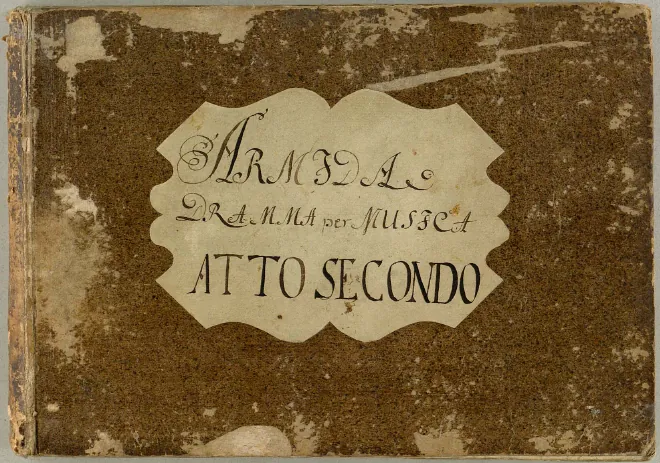 ARMIDA
DRAMMA per MUSICA
ATTO SECONDO